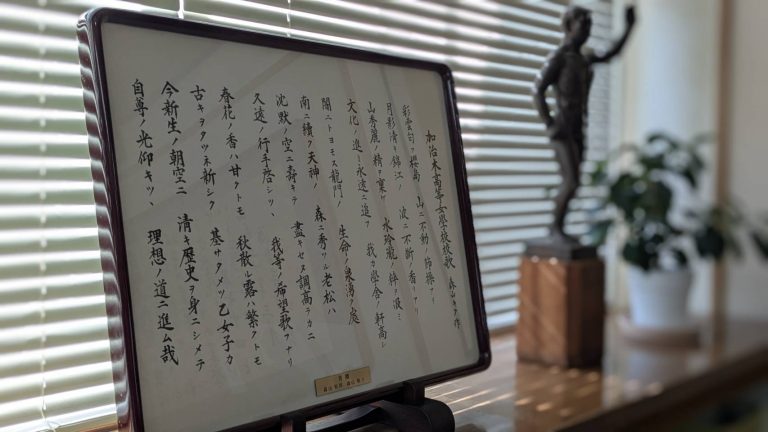 加治木高等女學校校歌
彩雲匂フ櫻島 山ニ不動ノ節操アリ
月影清キ錦江ノ 波ニ不断ノ香リアリ
山秀麗ノ精ヲ稟ケ 水玲瓏ノ粋ヲ汲ミ
文化ノ進ミ永遠ニ追フ 我ガ學舎ノ軒高シ
闇ニトヨモス龍門ノ 生命ノ泉湧ク處
南ニ續ク天神ノ 森ニ秀ヅル老松ハ
沈黙ノ空ニ壽ギテ 盡キセヌ調高ラカニ
久遠ノ行手啓シツヽ 我等ノ希望歌フナリ
春花ノ香ハ甘クトモ 秋散ル露ハ繁クトモ
古キヲタヅネ新シク 基サダメツ乙女子ガ
今新生ノ朝空ニ 清キ歴史ヲ身ニシメテ
自尊ノ光仰キツヽ 理想ノ道ニ進ム哉
寄贈